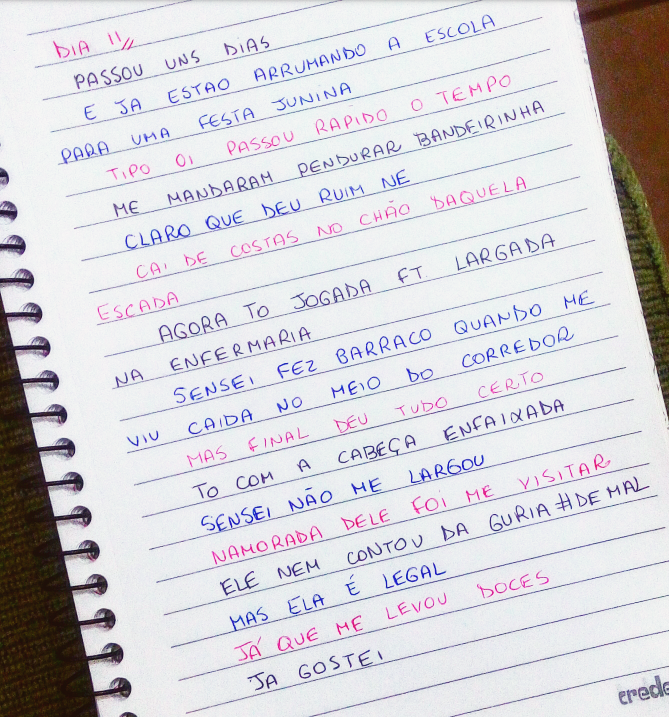 DIA 11//
PASSOU UNS DIAS
E JA ESTAO ARRUMANDO A ESCOLA
PARA UMA FESTA JUNINA
TIPO OI PASSOU RAPIDO O TEMPO
ME MANDARAM PENDURAR BANDEIRINHA
CLARO QUE DEU RUIM NE
CAI DE COSTAS NO CHÃO DAQUELA
ESCADA
AGORA TO JOGADA FT. LARGADA
NA ENFERMARIA
SENSEI FEZ BARRACO QUANDO ME
VIU CAIDA NO MEIO DO CORREDOR
MAS FINAL DEU TUDO CERTO
TO COM A CABEÇA ENFAIXADA
SENSEI NÃO ME LARGOU
NAMORADA DELE FOI ME VISITAR
ELE NEM CONTOU DA GURIA #DEMAL
MAS ELA É LEGAL
JÁ QUE ME LEVOU DOCES
JA GOSTEI